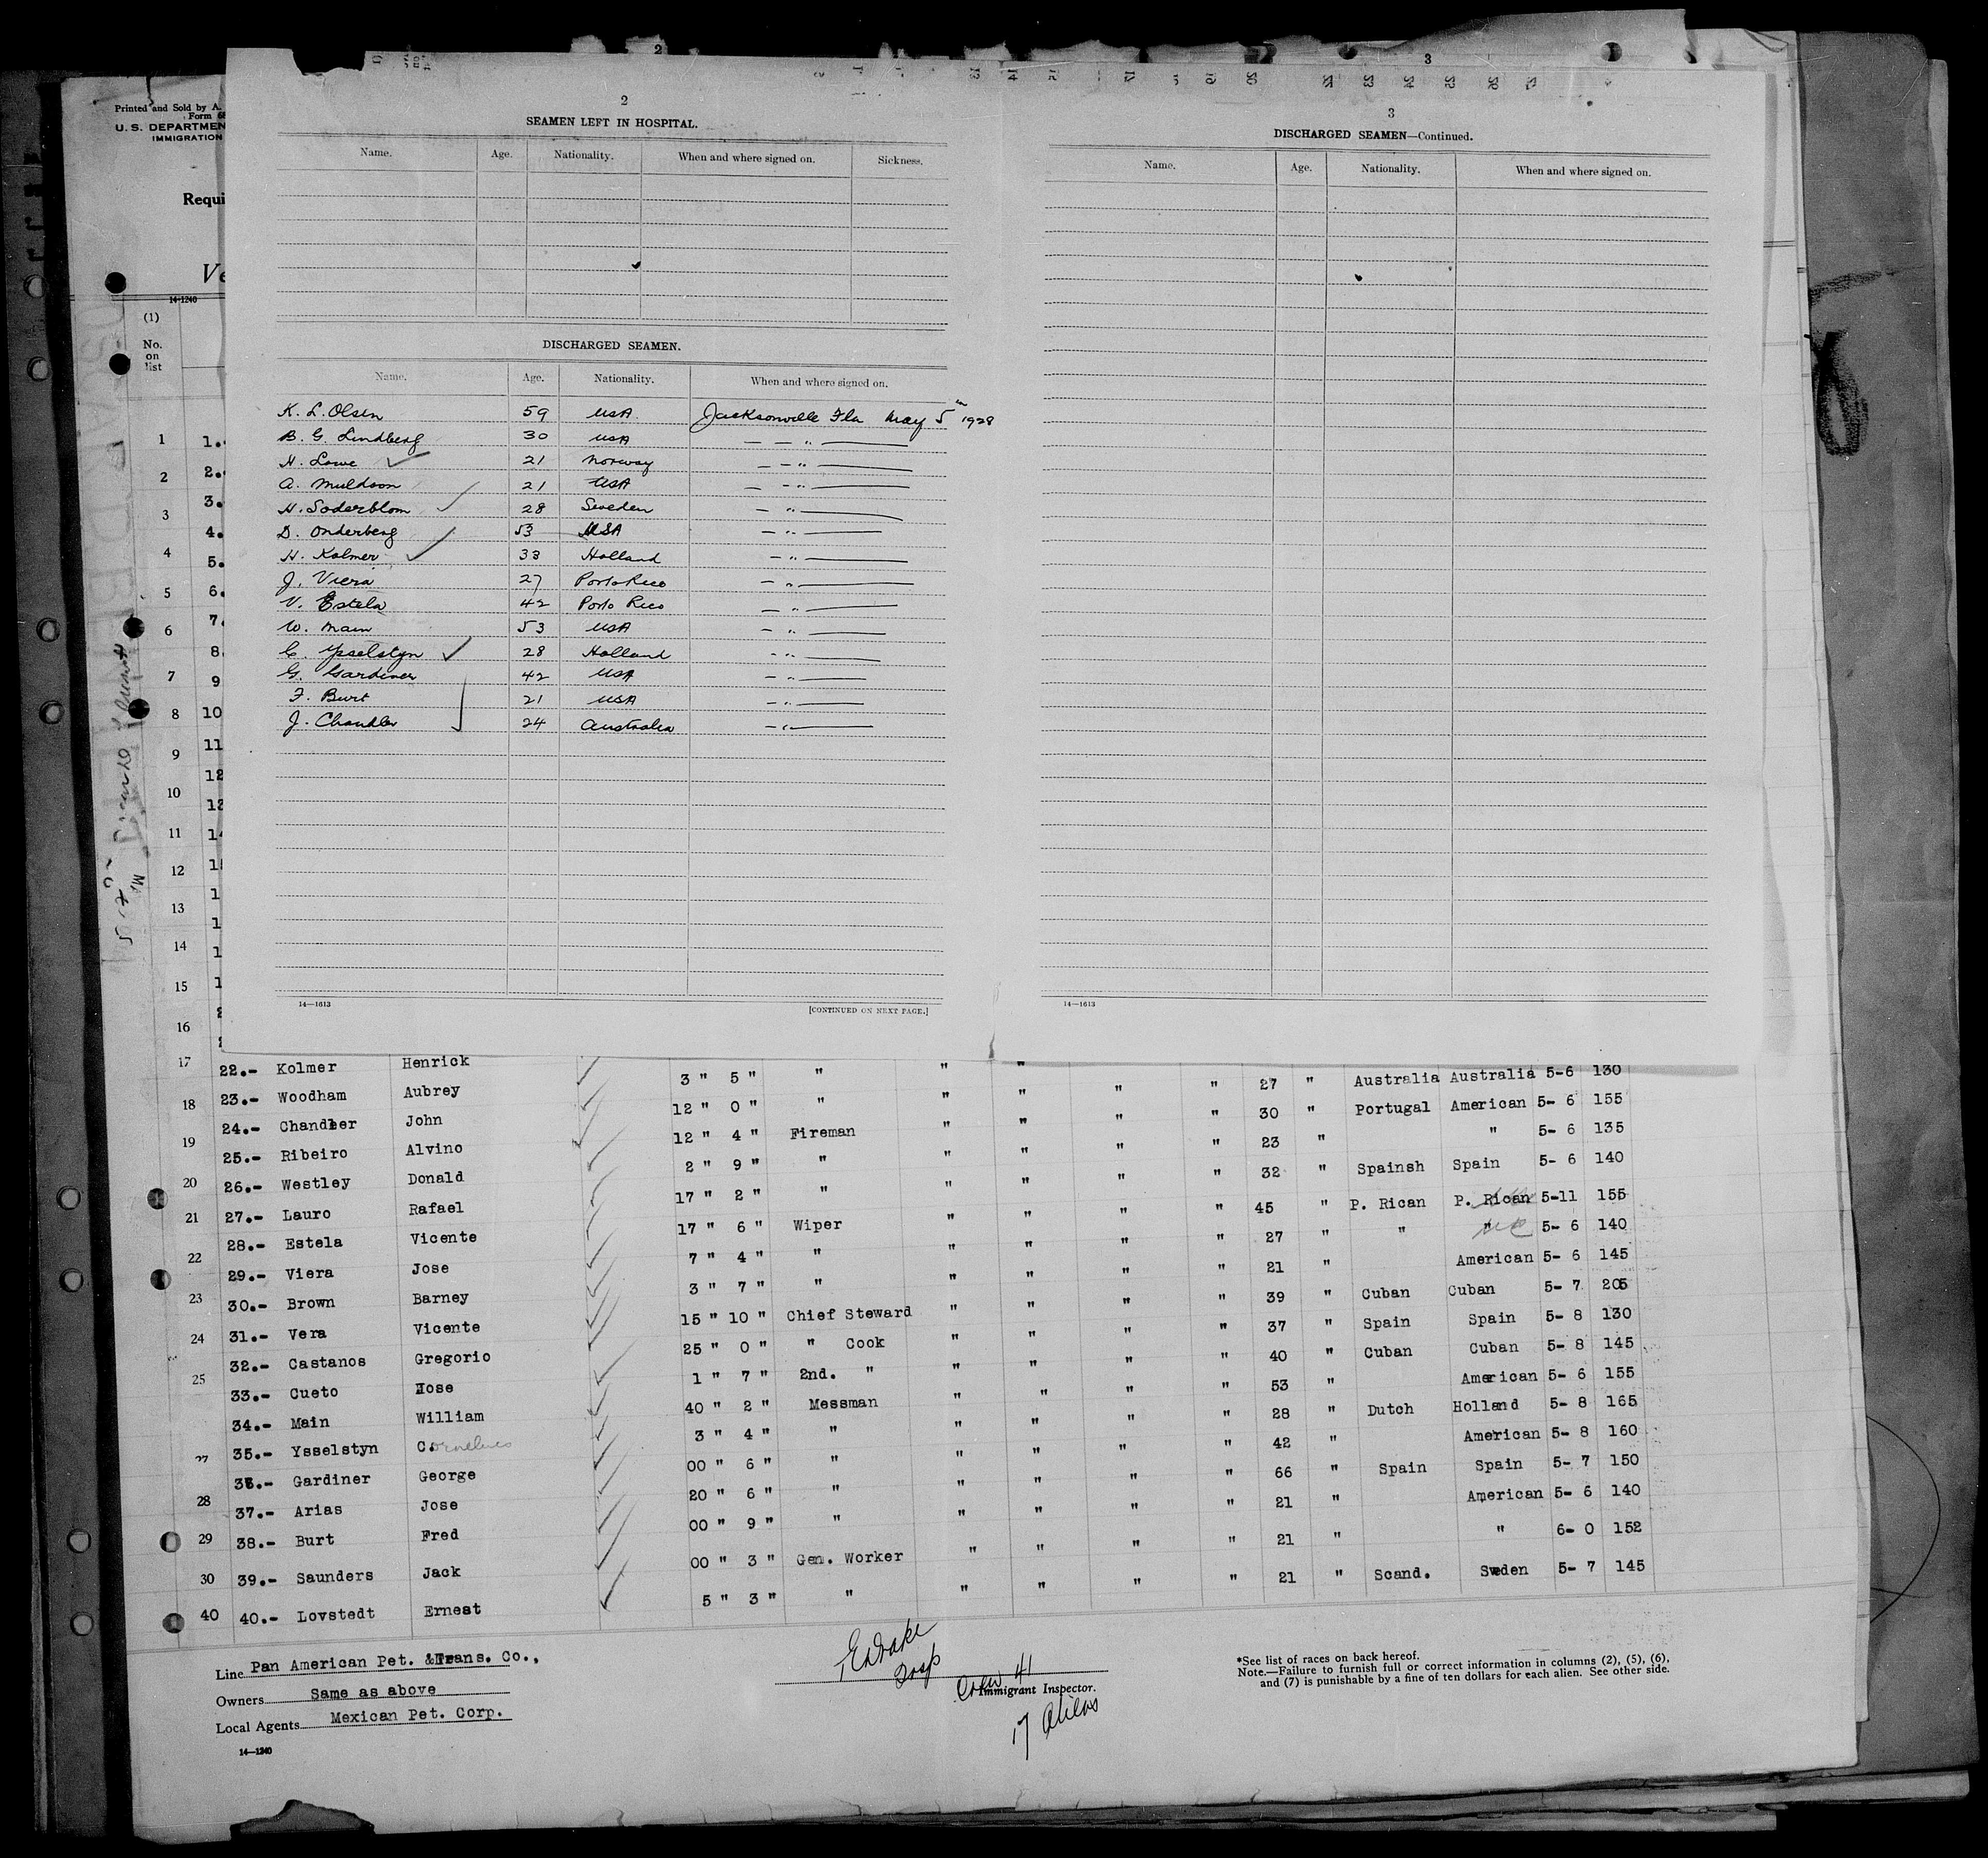 2
3
Printed and Sold by A.
Form 68
U. S. DEPARTMEN
IMMIGRATION
Requi
Ve
14-1240
(1)
No.
on
list
2
SEAMEN LEFT IN HOSPITAL.
Name. Age. Nationality. When and where signed on. Sickness.
DISCHARGED SEAMEN.
Name. Age. Nationality. When and where signed on.
K. L. Olsen 59 USA. Jacksonville Fla May 5th 1928
B. G. Lindberg 30 USA — — " ——
H. Lowe ✓ 21 Norway — — " ——
A. Muldoon 21 USA — — " ——
H. Soderblom ✓ 28 Sweden — " ——
D. Onderberg 53 USA — " ——
H. Kolmer ✓ 33 Holland — " ——
J. Viera 27 Porto Rico — " ——
V. Estela 42 Porto Rico — " ——
W. Main 53 USA — " ——
C. Ysselstyn ✓ 28 Holland — " ——
G. Gardiner 42 USA — " ——
F. Burt 21 USA — " ——
J. Chandler 24 Australia — " ——
14—1613
[CONTINUED ON NEXT PAGE.]
3
DISCHARGED SEAMEN—Continued.
Name. Age. Nationality. When and where signed on.
14—1613
1 1.
2 2.
3 3.
4 4.
5.
5 6.
6 7.
8
7 9
8 10
9 11
12
10
11
12
13
14
15
16
17 22.- Kolmer Henrick ✓
18 23.- Woodham Aubrey ✓ 3 " 5 " " " " " " 27 " Australia Australia 5-6 130
24.- Chandler John ✓ 12 " 0 " " " " " " 30 " Portugal American 5- 6 155
19 25.- Ribeiro Alvino ✓ 12 " 4 " Fireman " " " " 23 " " 5- 6 135
20 26.- Westley Donald ✓ 2 " 9 " " " " " " 32 " Spainsh Spain 5- 6 140
21 27.- Lauro Rafael ✓ 17 " 2 " " " " " " 45 " P. Rican P. Rican 5-11 155
28.- Estela Vicente ✓ 17 " 6 " Wiper " " " " 27 " " " 5- 6 140
22 29.- Viera Jose ✓ 7 " 4 " " " " " " 21 " American 5- 6 145
23 30.- Brown Barney ✓ 3 " 7 " " " " " " 39 " Cuban Cuban 5- 7 205
24 31.- Vera Vicente ✓ 15 " 10 " Chief Steward " " " " 37 " Spain Spain 5- 8 130
32.- Castanos Gregorio ✓ 25 " 0 " " Cook " " " " 40 " Cuban Cuban 5- 8 145
25 33.- Cueto Hose ✓ 1 " 7 " 2nd. " " " " " 53 " American 5- 6 155
34.- Main William ✓ 40 " 2 " Messman " " " " 28 " Dutch Holland 5- 8 165
27 35.- Ysselstyn C.ornelius ✓ 3 " 4 " " " " " " 42 " American 5- 8 160
36.- Gardiner George ✓ 00 " 6 " " " " " " 66 " Spain Spain 5- 7 150
28 37.- Arias Jose ✓ 20 " 6 " " " " " " 21 " American 5- 6 140
29 38.- Burt Fred ✓ 00 " 9 " " " " " " 21 " " 6- 0 152
30 39.- Saunders Jack ✓ 00 " 3 " Gen. Worker " " " " 21 " Scand. Sweden 5- 7 145
40 40.- Lovstedt Ernest ✓ 5 " 3 " " " " " "
Line Pan American Pet. &Trans. Co.,
Owners Same as above
Local Agents Mexican Pet. Corp.
14—1240
Insp
Crew 41
Immigrant Inspector.
17 Aliens
*See list of races on back hereof.
Note.—Failure to furnish full or correct information in columns (2), (5), (6),
and (7) is punishable by a fine of ten dollars for each alien. See other side.